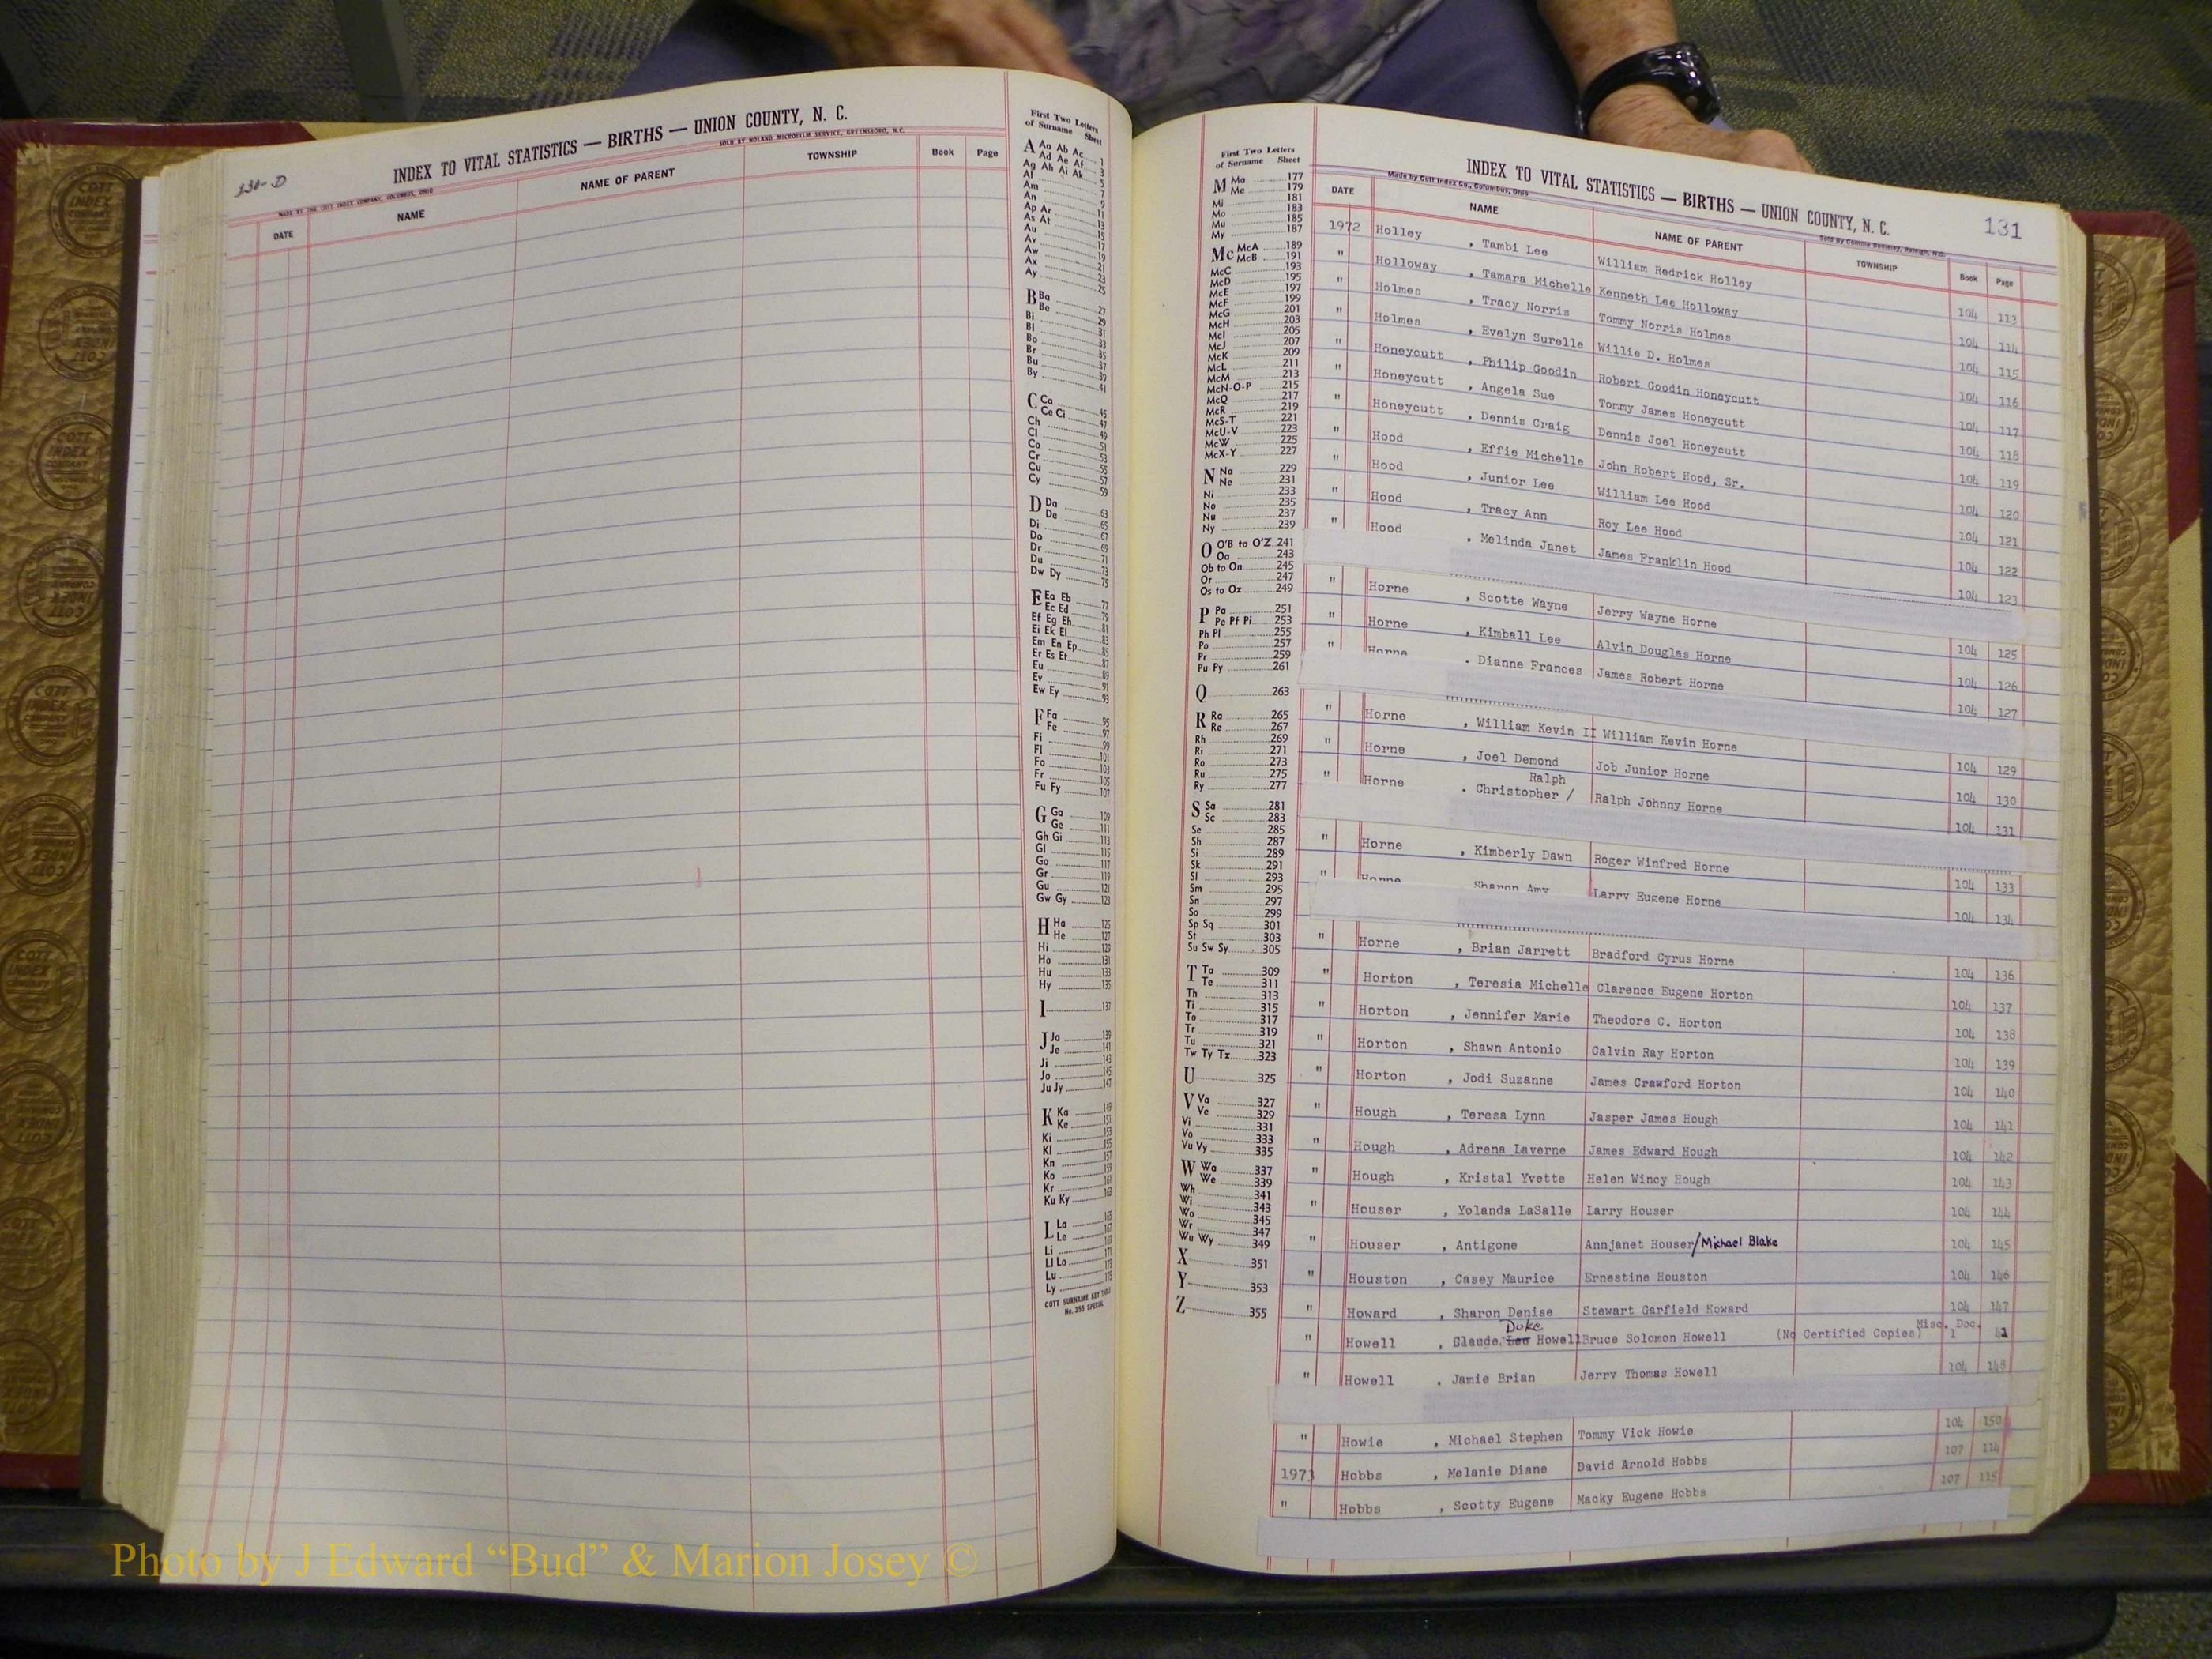 130-D
INDEX TO VITAL STATISTICS — BIRTHS — UNION COUNTY, N. C.
SOLD BY NOLAND MICROFILM SERVICE, GREENSBORO, N.C.
MADE BY THE COTT INDEX COMPANY, COLUMBUS, OHIO
DATE NAME NAME OF PARENT TOWNSHIP Book Page
First Two Letters
of Surname Sheet
A Aa Ab Ac 1
Ad Ae Af 3
Ag Ah Ai Ak 5
Al 7
Am 9
An 11
Ap Ar 13
As At 15
Au 17
Av 19
Aw 21
Ax 23
Ay 25
B Ba 27
Be 29
Bi 31
Bl 33
Bo 35
Br 37
Bu 39
By 41
C Ca 45
Ce Ci 47
Ch 49
Cl 51
Co 53
Cr 55
Cu 57
Cy 59
D Da 63
De 65
Di 67
Do 69
Dr 71
Du 73
Dw Dy 75
E Ea Eb 77
Ec Ed 79
Ef Eg Eh 81
Ei Ek El 83
Em En Ep 85
Er Es Et 87
Eu 89
Ev 91
Ew Ey 93
F Fa 95
Fe 97
Fi 99
Fl 101
Fo 103
Fr 105
Fu Fy 107
G Ga 109
Ge 111
Gh Gi 113
Gl 115
Go 117
Gr 119
Gu 121
Gw Gy 123
H Ha 125
He 127
Hi 129
Ho 131
Hu 133
Hy 135
I 137
J Ja 139
Je 141
Ji 143
Jo 145
Ju Jy 147
K Ka 149
Ke 151
Ki 153
Kl 155
Kn 157
Ko 159
Kr 161
Ku Ky 163
L La 165
Le 167
Li 169
Ll Lo 171
Lu 173
Ly 175
COTT SURNAME KEY TABLE
No. 355 SPECIAL
First Two Letters
of Surname Sheet
M Ma 177
Me 179
Mi 181
Mo 183
Mu 185
My 187
Mc McA 189
McB 191
McC 193
McD 195
McE 197
McF 199
McG 201
McH 203
McI 205
McJ 207
McK 209
McL 211
McM 213
McN-O-P 215
McQ 217
McR 219
McS-T 221
McU-V 223
McW 225
McX-Y 227
N Na 229
Ne 231
Ni 233
No 235
Nu 237
Ny 239
O O'B to O'Z 241
Oa 243
Ob to On 245
Or 247
Os to Oz 249
P Pa 251
Pe Pf Pi 253
Ph Pl 255
Po 257
Pr 259
Pu Py 261
Q 263
R Ra 265
Re 267
Rh 269
Ri 271
Ro 273
Ru 275
Ry 277
S Sa 281
Sc 283
Se 285
Sh 287
Si 289
Sk 291
Sl 293
Sm 295
Sn 297
So 299
Sp Sq 301
St 303
Su Sw Sy 305
T Ta 309
Te 311
Th 313
Ti 315
To 317
Tr 319
Tu 321
Tw Ty Tz 323
U 325
V Va 327
Ve 329
Vi 331
Vo 333
Vu Vy 335
W Wa 337
We 339
Wh 341
Wi 343
Wo 345
Wr 347
Wu Wy 349
X 351
Y 353
Z 355
INDEX TO VITAL STATISTICS — BIRTHS — UNION COUNTY, N. C. 131
Made by Cott Index Co., Columbus, Ohio
DATE NAME NAME OF PARENT TOWNSHIP Book Page
1972 Holley , Tambi Lee William Redrick Holley 104 113
" Holloway , Tamara Michelle Kenneth Lee Holloway 104 114
" Holmes , Tracy Norris Tommy Norris Holmes 104 115
" Holmes , Evelyn Surelle Willie D. Holmes 104 116
" Honeycutt , Philip Goodin Robert Goodin Honeycutt 104 117
" Honeycutt , Angela Sue Tommy James Honeycutt 104 118
" Honeycutt , Dennis Craig Dennis Joel Honeycutt 104 119
" Hood , Effie Michelle John Robert Hood, Sr. 104 120
" Hood , Junior Lee William Lee Hood 104 121
" Hood , Tracy Ann Roy Lee Hood 104 122
" Hood , Melinda Janet James Franklin Hood 104 123
" Horne , Scotte Wayne Jerry Wayne Horne 104 125
" Horne , Kimball Lee Alvin Douglas Horne 104 126
" Horne , Dianne Frances James Robert Horne 104 127
" Horne , William Kevin II William Kevin Horne 104 129
" Horne , Joel Demond Job Junior Horne 104 130
Ralph
" Horne , Christopher / Ralph Johnny Horne 104 131
" Horne , Kimberly Dawn Roger Winfred Horne 104 133
" Horne Sharon Amy Larry Eugene Horne 104 134
" Horne , Brian Jarrett Bradford Cyrus Horne 104 136
" Horton , Teresia Michelle Clarence Eugene Horton 104 137
" Horton , Jennifer Marie Theodore C. Horton 104 138
" Horton , Shawn Antonio Calvin Ray Horton 104 139
" Horton , Jodi Suzanne James Crawford Horton 104 140
" Hough , Teresa Lynn Jasper James Hough 104 141
" Hough , Adrena Laverne James Edward Hough 104 142
" Hough , Kristal Yvette Helen Wincy Hough 104 143
" Houser , Yolanda LaSalle Larry Houser 104 144
" Houser , Antigone Annjanet Houser/Michael Blake 104 145
" Houston , Casey Maurice Ernestine Houston 104 146
" Howard , Sharon Denise Stewart Garfield Howard 104 147
Duke Misc. Doc.
" Howell , Claude Lee Howell Bruce Solomon Howell (No Certified Copies) 1
" Howell , Jamie Brian Jerry Thomas Howell 104 148
" Howie , Michael Stephen Tommy Vick Howie 104 150
1973 Hobbs , Melanie Diane David Arnold Hobbs 107 114
" Hobbs , Scotty Eugene Macky Eugene Hobbs 107 115
Photo by J Edward “Bud” & Marion Josey ©